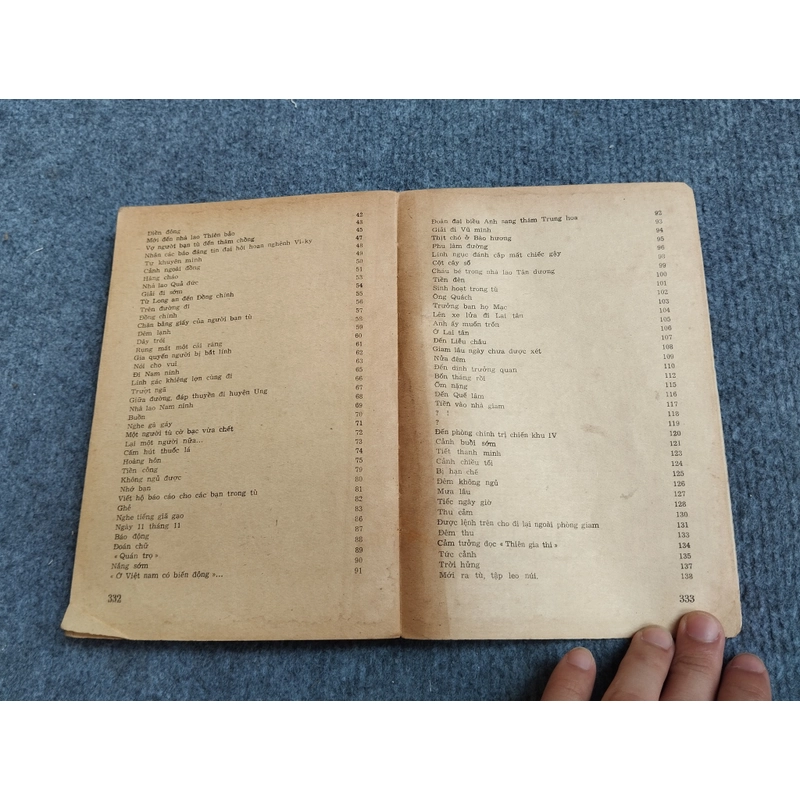 Điền đông 42
Mới đến nhà lao Thiên bảo 45
Vợ người bạn tù đến thăm chồng 45
Nhân các báo đăng tin đại hội hoan nghênh Vi-ky 47
Tự khuyên mình 48
Cảnh ngoài đồng 50
Hàng cháo 51
Nhà lao Quả đức 51
Giải đi sớm 54
Từ Long an đến Đồng chính 55
Trên đường đi 56
Đồng chính 57
Chăn bằng giấy của người bạn tù 58
Đêm lạnh 59
Dây trói 59
Rụng mất một cái răng 60
Gia quyến người bị bắt lính 61
Nói cho vui 62
Đi Nam ninh 63
Lính gác khiêng lợn cùng đi 64
Trượt ngã 66
Giữa đường, đáp thuyền đi huyện Ung 67
Nhà lao Nam ninh 68
Buồn 69
Nghe gà gáy 70
Một người tù cờ bạc vừa chết 71
Lại một người nữa... 72
Cấm hút thuốc lá 73
Hoàng hôn 74
Tiền công 75
Không ngủ được 79
Nhớ bạn 80
Viết hộ báo cáo cho các bạn trong tù 81
Ghẻ 82
Nghe tiếng giã gạo 83
Ngày 11 tháng 11 86
Báo động 87
Đoán chữ 88
« Quán trọ » 89
Nắng sớm 90
« Ở Việt nam có biến động »... 91
332
Đoàn đại biểu Anh sang thăm Trung hoa 92
Giải đi Vũ minh 93
Thịt chó ở Bào hương 94
Phu làm đường 95
Lính ngục đánh cắp mất chiếc gậy 96
Cột cây số 98
Cháu bé trong nhà lao Tân dương 99
Tiền đèn 100
Sinh hoạt trong tù 101
Ông Quách 102
Trưởng ban họ Mạc 103
Lên xe lửa đi Lai tân 104
Anh ấy muốn trốn 105
Ở Lai tân 106
Đến Liễu châu 107
Giam lâu ngày chưa được xét 108
Nửa đêm 109
Đến dinh trưởng quan 110
Bốn tháng rồi 112
Ốm nặng 115
Đến Quế lâm 116
Tiền vào nhà giam 117
? ! 118
? 119
Đến phòng chính trị chiến khu IV 120
Cảnh buổi sớm 121
Tiết thanh minh 123
Cảnh chiều tối 124
Bị hạn chế 125
Đêm không ngủ 126
Mưa lâu 127
Tiếc ngày giờ 128
Thu cảm 130
Được lệnh trên cho đi lại ngoài phòng giam 131
Đêm thu 133
Cảm tưởng đọc « Thiên gia thi » 134
Tức cảnh 135
Trời hửng 137
Mới ra tù, tập leo núi. 138
333